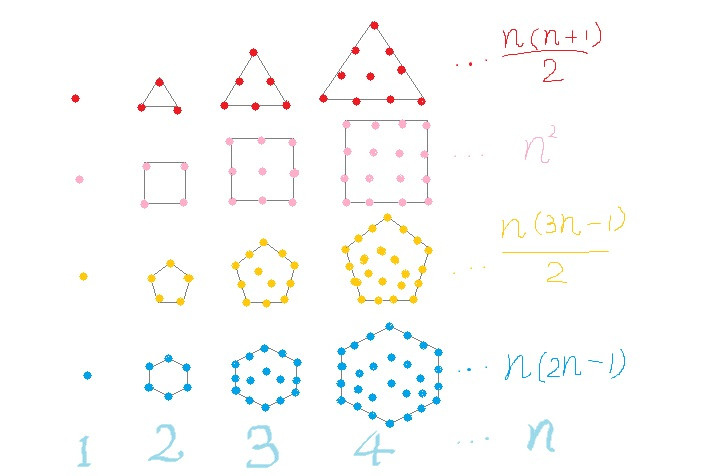 ... n(n+1)/2
... n²
... n(3n-1)/2
... n(2n-1)
1 2 3 4 ... n